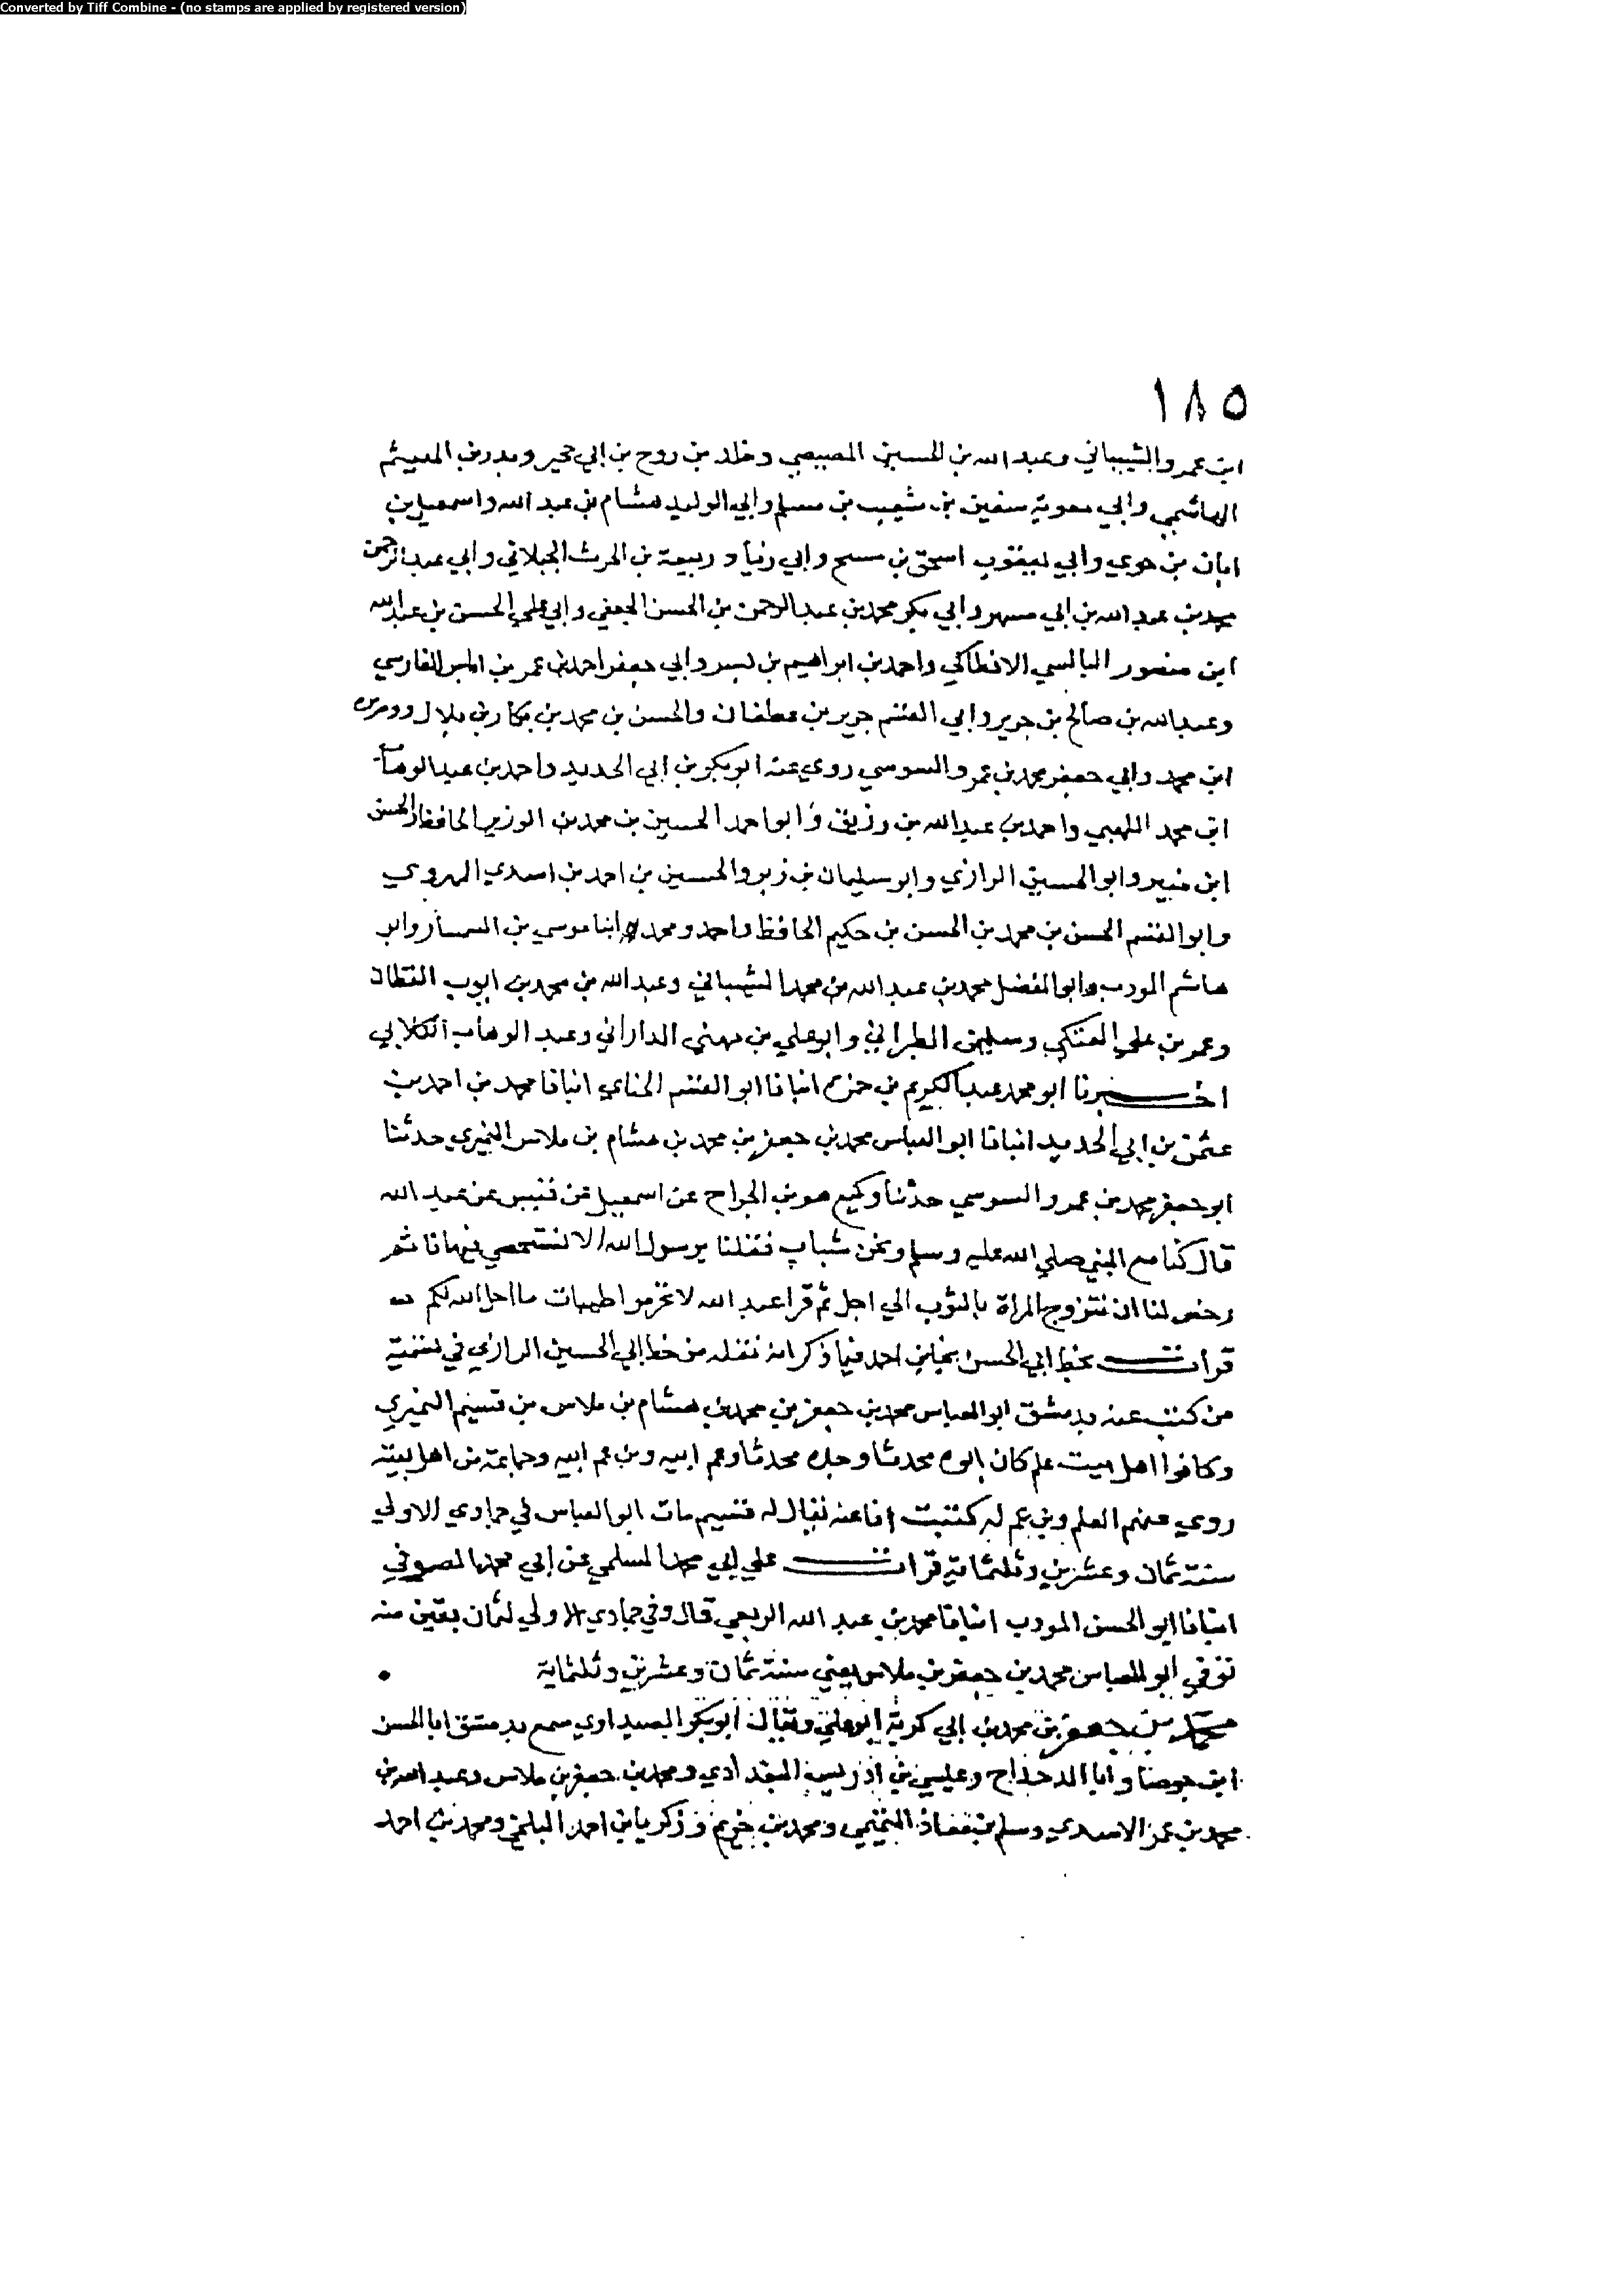 Converted by Tiff Combine - (no stamps are applied by registered version)
١٨٥
ابن عمرو الشيباني وعبد الله بن الحسين المصيصي وخلد بن روح بن ابي حجير وبدر بن الهيثم
الهاشمي وابي معوية سفين بن شعيب بن مسلم وابي الوليد هشام بن عبد الله واسمعيل بن
ابان بن حوي وابي يعقوب اسحق بن مسبح وابي زياد ربيعة بن الحرث الجبلاني وابي عبد الرحمن
محمد بن عبد الله بن ابي مسهر وابي بكر محمد بن عبد الرحمن بن الحسن الجعفي وابي علي الحسن بن عبد الله
ابن منصور البالسي الانطاكي واحمد بن ابراهيم بن بسر وابي جعفر احمد بن عمر بن الفارسي
وعبد الله بن صالح بن جرير وابي القسم جرير بن غطفان والحسن بن محمد بن بكار بن بلال ووريزه
ابن محمد وابي جعفر محمد بن عمرو السوسي روي عنه ابو بكر بن ابي الحديد واحمد بن عبد الوهاب
ابن محمد اللهبي واحمد بن عبد الله بن رزيق وابو احمد الحسين بن محمد بن الوزير الحافظ والحسن
ابن منير وابو الحسين الرازي وابو سليمان بن زبر والحسين بن احمد بن اسدي الهروي
وابو القسم الحسن بن محمد بن الحسن بن حكيم الحافظ واحمد ومحمد ابنا موسي بن السمسار وابو
هاشم المودب وابو المفضل محمد بن عبد الله بن محمد الشيباني وعبد الله بن محمد بن ايوب القطان
وعمر بن علي العتكي وسليمن الطبراني وابو علي بن مهني الداراني وعبد الوهاب الكلابي
اخبرنا ابو محمد عبد الكريم بن حمزه انبانا ابو القسم الحناي انبانا محمد بن احمد بن
عثمن بن ابي الحديد انبانا ابو العباس محمد بن جعفر بن محمد بن هشام بن ملاس النميري حدثنا
ابو جعفر محمد بن عمرو السوسي حدثنا وكيع هو بن الجراح عن اسمعيل عن قيس عن عبد الله
قال كنا مع النبي صلي الله عليه وسلم ونحن شباب فقلنا يرسول الله الا نستخصي فنهانا ثم
رخص لنا ان نتزوج المراة بالثوب الي اجل ثم قرا عبد الله لا تحرموا طيبات ما احل الله لكم
قرات بخط ابي الحسن نجا بن احمد فيما ذكر انه نقله من خط ابي الحسين الرازي في تسمية
من كتب عنه بدمشق ابو العباس محمد بن جعفر بن محمد بن هشام بن ملاس بن قسيم النميري
وكانوا اهل بيت علم كان ابوه محدثا وجده محدثا وعم ابيه وبن عم ابيه وجماعة من اهل بيته
روي عنهم العلم وبن عم له كتبت انا عنه يقال له قسيم مات ابو العباس في جمادي الاولي
سنة ثمان وعشرين وثلثماية قرات علي ابي محمد السلمي عن ابي محمد الصوفي
انبانا ابو الحسن المودب انبانا محمد بن عبد الله الربعي قال وفي جمادي الاولي لثمان بقين منه
توفي ابو العباس محمد بن جعفر بن ملاس يعني سنة ثمان وعشرين وثلثماية
محمد بن جعفر بن محمد بن ابي كريمة ابو علي ويقال ابو بكر الصيداوي سمع بدمشق ابا الحسن
ابن جوصا وابا الدحداح وعيسي بن ادريس البغدادي ومحمد بن جعفر بن ملاس وعبد الله بن
محمد بن عمر الاسدي وسلم بن معاذ التميمي ومحمد بن خريم وزكريا بن احمد البلخي ومحمد بن احمد